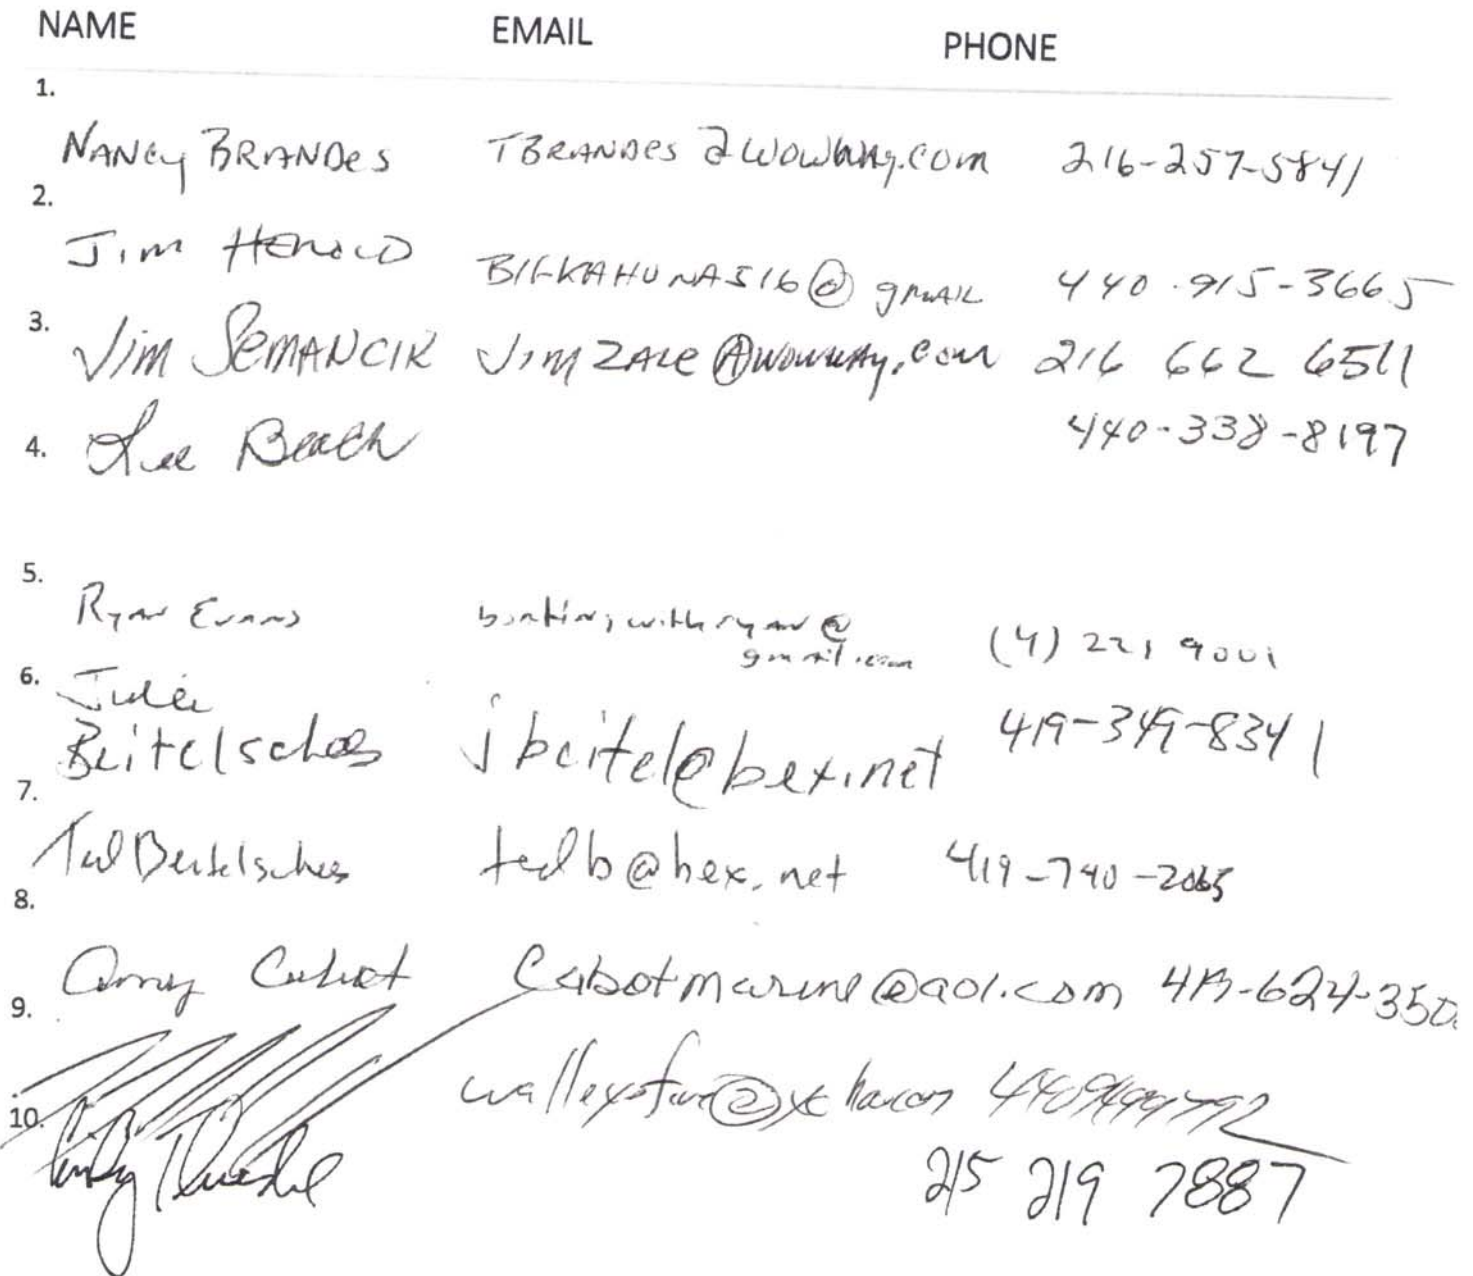 NAME EMAIL PHONE
1.
NANCY BRANDES TBRANDES @WOWWAY.COM 216-257-5841
2.
JIM HEROLD BIGKAHUNA516@gmail 440.915-3665
3. JIM SEMANCIK JIMZALE@WOWWAY.COM 216 662 6511
4. Lee Beach 440-338-8197
5.
Ryan Evans boatingwithryan@
gmail.com (4) 221 9001
6. Julie
Beitelschees jbeitel@bex.net 419-349-8341
7.
Ted Beitelschees tedb@bex.net 419-740-2065
8.
Amy Cabot Cabotmarine@aol.com 419-624-350
9.
10.
215 219 7887